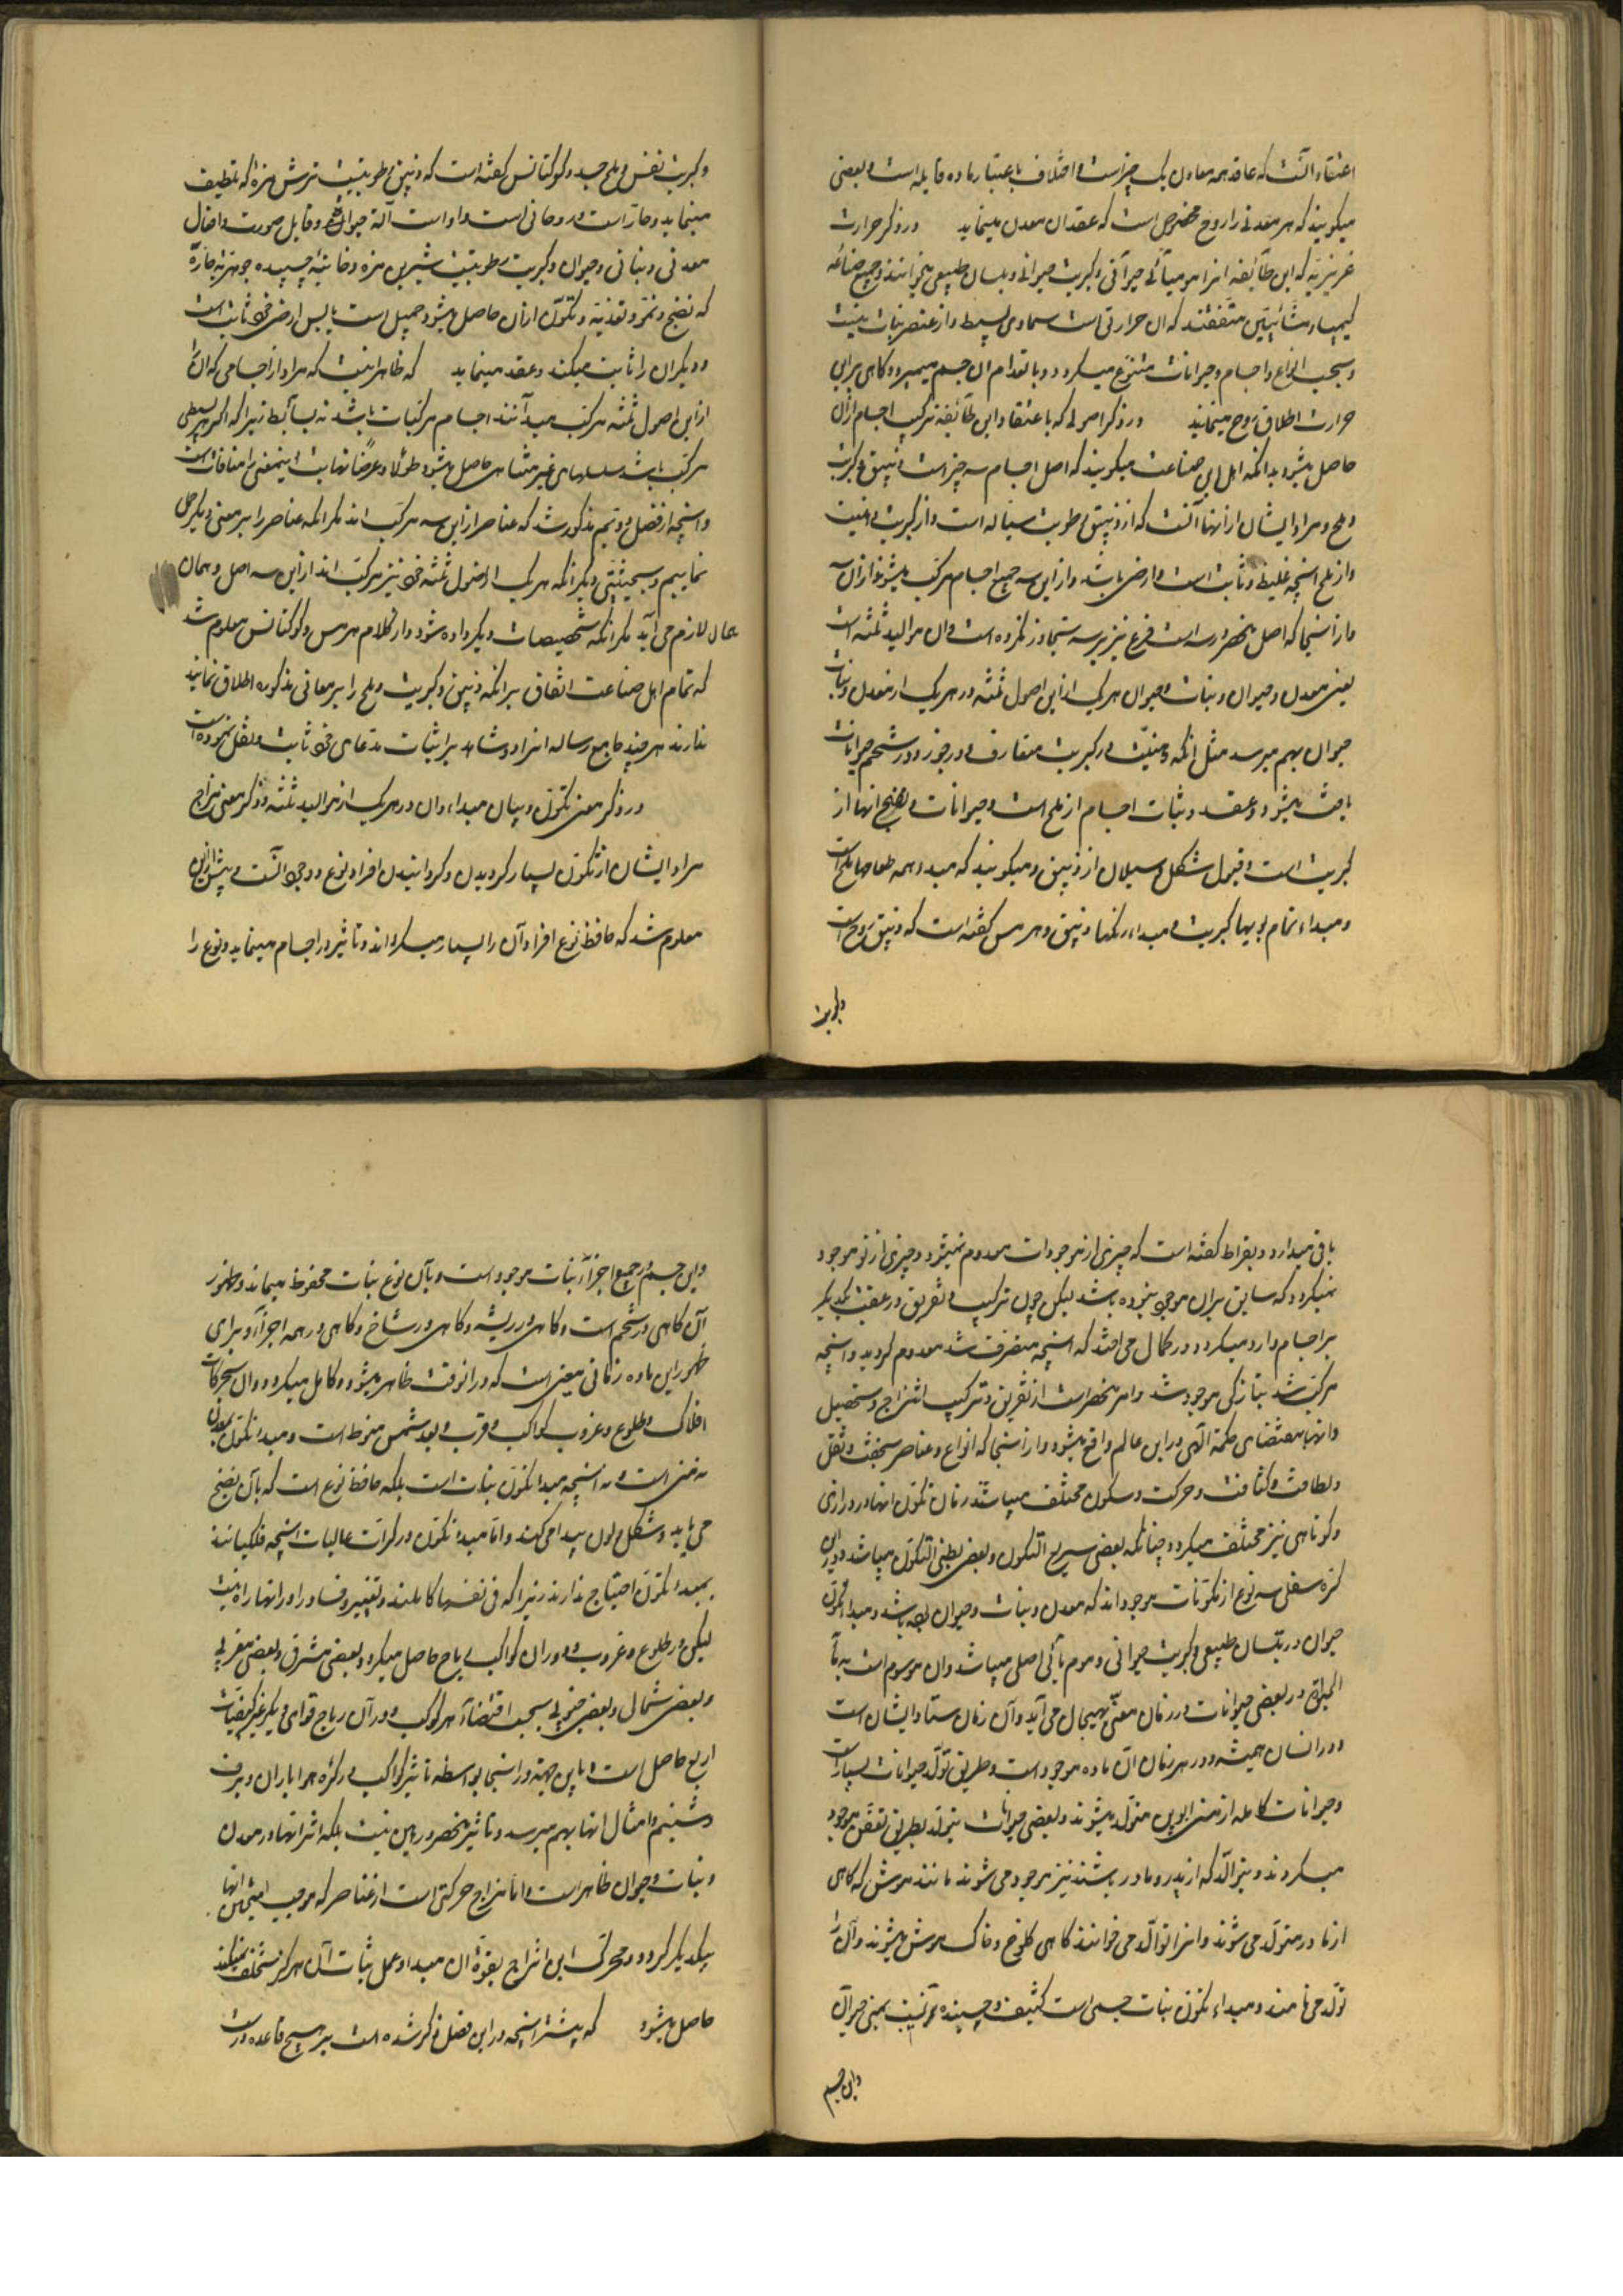 اعتقاد آنست که عاقد همه معادن یک چیز است و اختلاف باعتبار ماده قابله است و بعضی
میکویند که هر معدنی را روح مخصوص است که عقد ان معدن مینماید در ذکر حرارت
غریزیه که این طآئفه انرا مومیآئی حیوآنی و کبریت حیوانی و بلسان طبیعی میخوانند و جمیع صناعه
کیمیا و مشائیین متفقند که ان حرارتی است سماوی بسیط و از عنصریات نیست
و بحسب انواع و اجسام و حیوانات متنوع میکردد و بانعدام ان جسم میمیرد و کاهی برای
حرارت اطلاق روح مینمایند در ذکر اصولی که باعتقاد این طآئفه ترکیب اجسام ازآن
حاصل میشود بدانکه اهل این صناعت میکویند که اصل اجسام سه چیز است زیبق و کبریت
و ملح و مراد ایشان از انها آنست که از زیبق رطوبت سیاله است و از کبریت دهنیت
و از ملح انچه غلیظ و ثابت است و ارضی باشد و ازین سه جمیع اجسام مرکب میشوند و ازآن سه
و از آنجا که اصل منحصر در سه است فرع نیز بر سه تجاوز نکرده است و ان موالید ثلثه است
یعنی معدن و حیوان و نبات و حیوان هریک از این اصول ثلثه در هریک از معدن و نبات
حیوان بهم میرسد مثل انکه دهنیت در کبریت متعارف و در جوز و در شحم حیوانات
یافت میشود و عقد و ثبات اجسام از ملح است و حیوانات و نضج انها از
کبریت است و قبول شکل و سیلان از زیبق و میکویند که مبدء همه طعمها ملح است
و مبداء تمام بویها کبریت و مبداء رنکها زیبق و هرمس کفته است که زیبق روح است
و کبریت
و کبریت نفس و ملح جسد و کوکتانس کفته است که زیبق رطوبتیست ترش مزه که تلطیف
مینماید و حار است و روحانی است و او است آلة حیوان و قابل صورت و افعال
معدنی و نباتی و حیوان و کبریت رطوبتیست شیرین مزه و دخانیة چسپیده جوهریة حارة
که نضج و نمو و تغذیه و تکون ازان حاصل میشود و جمیل است یابس ارضی خود ثابت است
و دیکران را ثابت میکند و عقد مینماید که ظاهر اینست که مراد از اجسامی که ان را
ازین اصول ثلثه مرکب میدآنند اجسام مرکبات باشد نه بسآئط زیرا که اکر هر بسیطی
مرکب باشد سلسلهای غیر متناهی حاصل میشود طولا و عرضا
و انچه از فصل دویم مذکور شد که عناصر ازین سه مرکب اند مکر انکه عناصر را بر معنی دیکر حمل
نماییم و بحیثیتی دیکر انکه هریک از اصول ثلثه خود نیز مرکب اند ازین سه اصل و همان
محال لازم می آید مکر انکه تخصیصات دیکر داده شود و از کلام هرمس و کوکتانس معلوم شد
که تمام اهل صناعت اتفاق بر انکه زیبق و کبریت و ملح را بر معانی مذکوره اطلاق نمایند
ندارند هرچند جامع رساله انرا و شاهد بر اثبات مدعای خود ثابت و نقل نموده است
در ذکر معنی تکون و بیان مبداء وان در هریک از موالید ثلثه و ذکر معنی مزاج
مراد ایشان از تکون بسیار کردیدن و کردانیدن افراد نوع و وجود آنست و پیش ازین
معلوم شد که حافظ نوع افراد آن را بسیار میکرداند و تاثیر در اجسام مینماید و نوع را
باقی میدارد و بقراط کفته است که چیزی از موجودات معدوم نمیشود و چیزی از نو موجود
نمیکردد که سابق بران موجود نبوده باشد لیکن چون ترکیب و تفریق در عقب یکدیکر
بر اجسام وارد میکردد در کمان می افتد که انچه متفرق شد معدوم کردید و انچه
مرکب شد بتازکی موجود شد و امر منحصر است از تفریق و ترکیب امتزاج و تحصیل
و انها بمقتضای حکمة الهی در این عالم واقع میشود و از آنجا که انواع و عناصر بخفت و ثقل
و لطافت و کثافت و حرکت و سکون مختلف میباشند زمان تکون انها در درازی
و کوتاهی نیز مختلف میکردد چنانکه بعضی سریع التکون و بعضی بطیئ التکون میباشد و در این
کره سفلی سه نوع از مکونات موجود اند که معدن و نبات و حیوان بوده باشد و مبدء تکون
حیوان در بلسان طبیعی و کبریت حیوانی و موم یآئی اصلی میباشد وان موسوم است به مآء
الحیوة و در بعضی حیوانات در زمان معین بهیجان می آید و آن زمان سفاد ایشان است
و در انسان همیشه و در هر زمان ان ماده موجود است و طریق تولد حیوانات بسیار است
و حیوانات کامله از منی ابوین متولد میشوند و بعضی حیوانات بتولد بطریق تعفن موجود
میکردند و بتوالد که از پدر و مادر باشند نیز موجود می شوند مانند موش که کاهی
از مادر متولد می شوند و انرا توالد می خوانند کاهی کلوخ و خاک موش میشوند و آن را
تولد می نامند و مبداء تکون نبات جسمی است کثیف و چسپنده بمنی حیوآن
واین جسم
واین جسم در جمیع اجزآء نبات موجود است و بآن نوع نبات محفوظ میماند و ظهور
آن کاهی در تخم است و کاهی در ریشه و کاهی در شاخ و کاهی در همه اجزآء و برای
ظهور این ماده زمانی معین است که در انوقت ظاهر میشود و کامل میکردد وان بحرکات
افلاک و طلوع و غروب کواکب و قرب و بعد شمس منوط است و مبداء تکون معدن
نه منی است و نه انچه مبدا تکون نبات است بلکه حافظ نوع است که بآن نضج
می یابد و شکل و لون پیدا می کند و اما مبدء تکون در کرات عالیات انچه فلکیاتند
بمبدء تکون احتیاج ندارند زیرا که فی نفسها کاملند و تغییر و فساد را در انها راه نیست
لیکن در طلوع و غروب و دوران کواکب ریاح حاصل میکردد بعضی مشرقی و بعضی مغربی
و بعضی شمالی و بعضی جنوبی بحسب اقتضآء هر کوکب و در آن ریاح قوای دیکر غیر کیفیات
اربع حاصل است و باین جهة در اینجا بواسطه تاثیر کواکب در کره هوا باران و برف
و شبنم و امثال انها بهم میرسد و تاثیر منحصر در همین نیست بلکه اثر انها در معدن
و نبات و حیوان ظاهر است و اما مزاج حرکتی است از عناصر که موجب آمیختن انها
بیکدیکر کردد و محرک این امتزاج بقوة ان مبدا و عمل ثبات آن هرکز تخلف نمیکند
حاصل میشود که بیشتر انچه در این فصل ذکر شده است بر هیچ قاعده درست